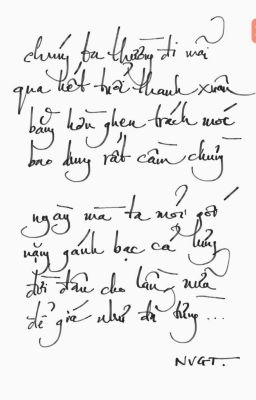 chúng ta thường đi mãi
qua hết tuổi thanh xuân
bằng hờn ghen trách móc
bao dung rất cần chừng
ngày mà ta mỏi gót
nặng gánh bạc cả lưng
đời đâu cho lần nữa
để giá như đã từng ...
NVGT.